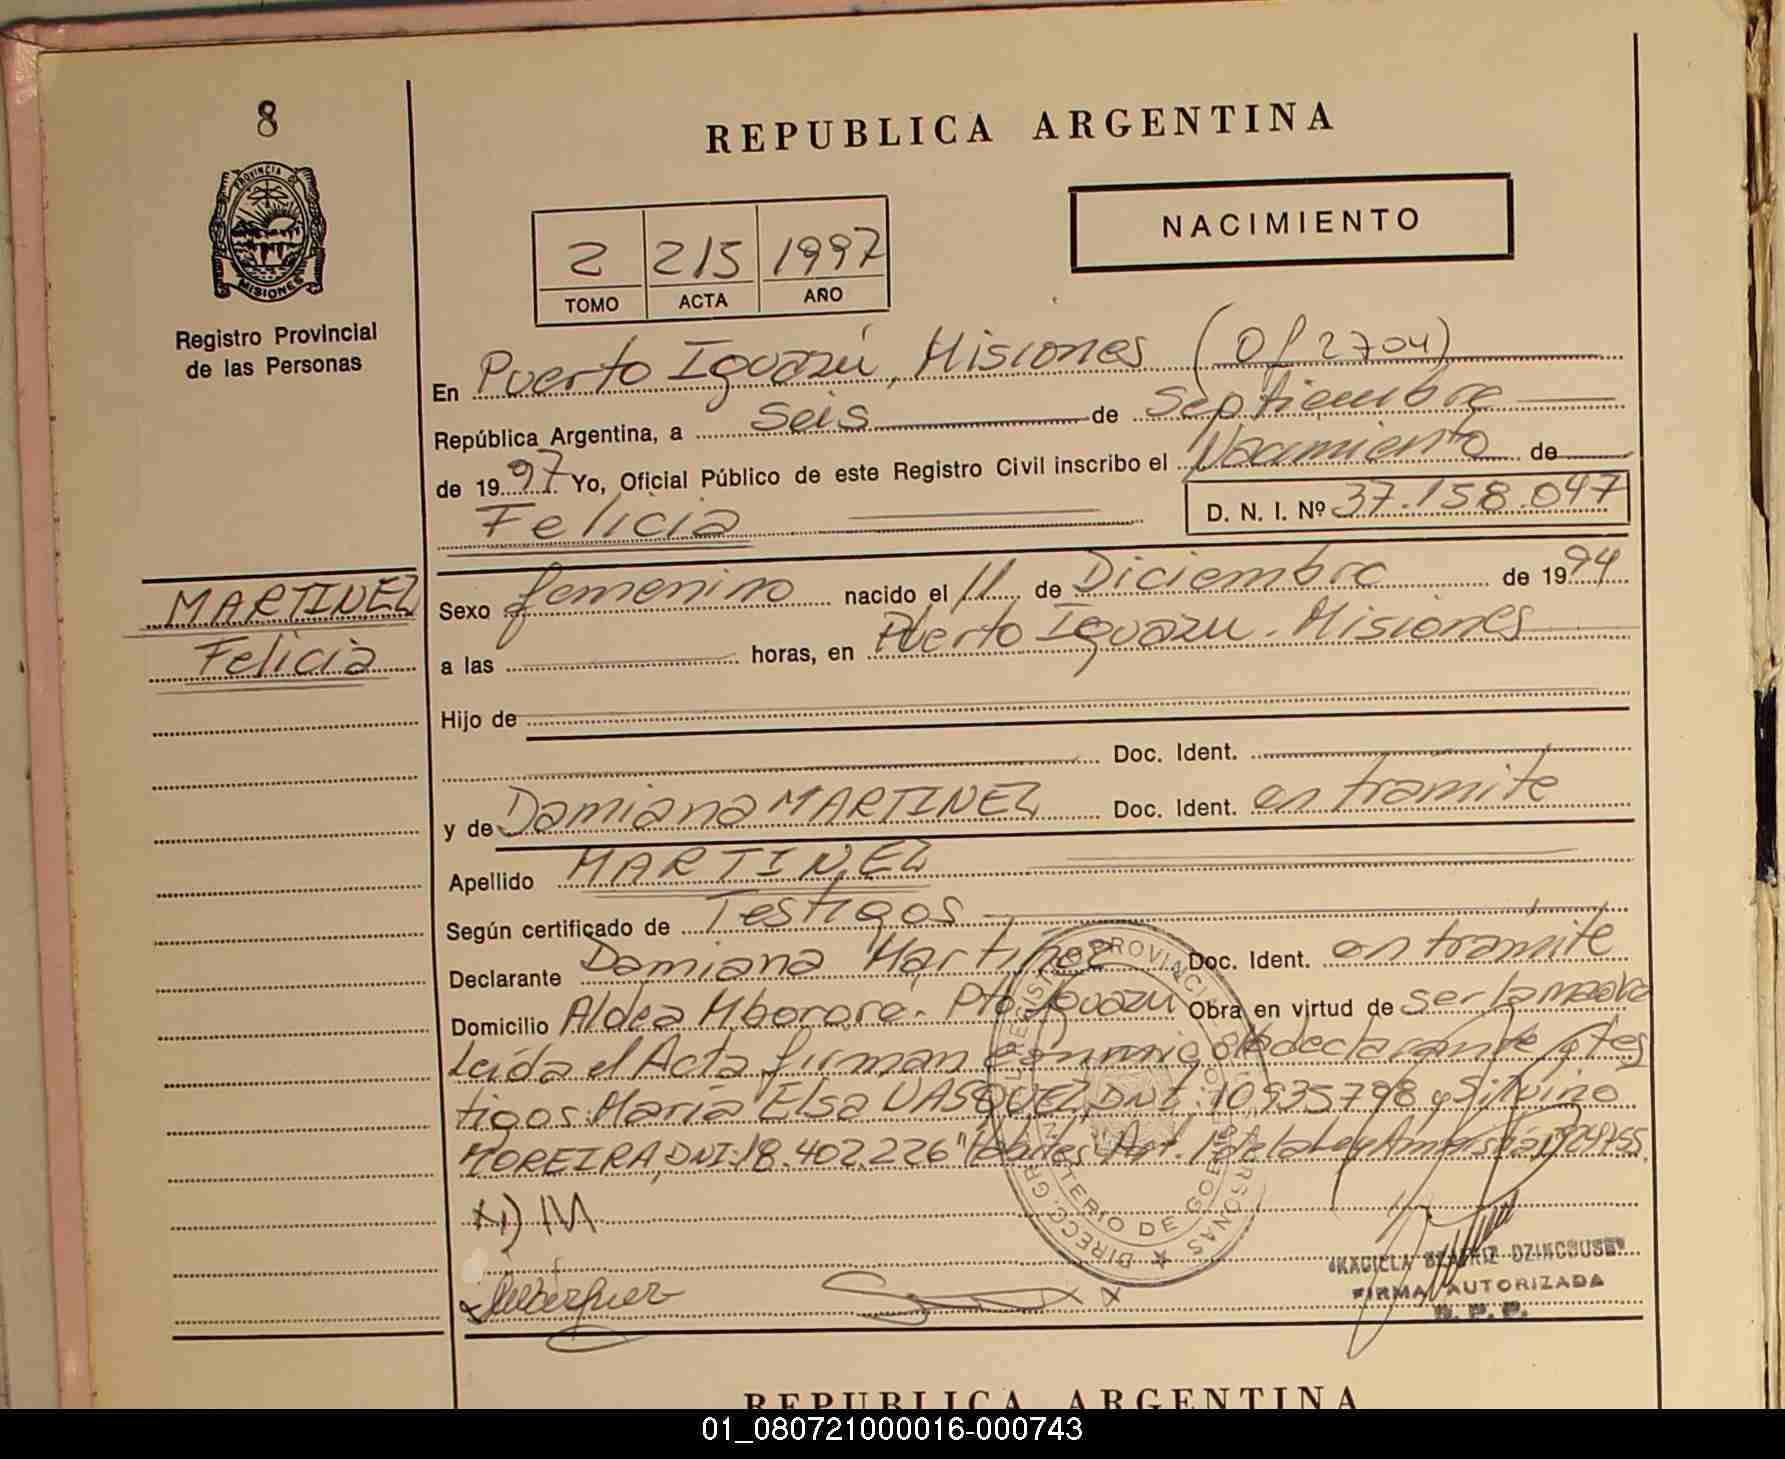 8
REPUBLICA ARGENTINA
PROVINCIA DE
MISIONES
NACIMIENTO
2 215 1997
TOMO ACTA AÑO
Registro Provincial
de las Personas
En Puerto Iguazú, Misiones (Of 2704)
República Argentina, a seis de septiembre
de 1997 Yo, Oficial Público de este Registro Civil inscribo el Nacimiento de
Felicia D. N. I. Nº 37.158.047
MARTINEZ
Felicia
Sexo femenino nacido el 11 de Diciembre de 1994
a las horas, en Puerto Iguazu. Misiones
Hijo de
Doc. Ident.
y de Damiana MARTINEZ Doc. Ident. en tramite
Apellido MARTINEZ
Según certificado de Testigos
Declarante Damiana Martinez Doc. Ident. en tramite
Domicilio Aldea Mborore. Pto Iguazu Obra en virtud de ser la madre
Leída el Acta firman conmigo declarante y tes
tigos: Maria Elsa VASQUEZ, DNI: 10935798 y Silvino
MOREIRA, DNI: 18.402.226 Art. 1º de la Ley
FIRMA AUTORIZADA
R. P. P.
REPUBLICA ARGENTINA
01_080721000016-000743